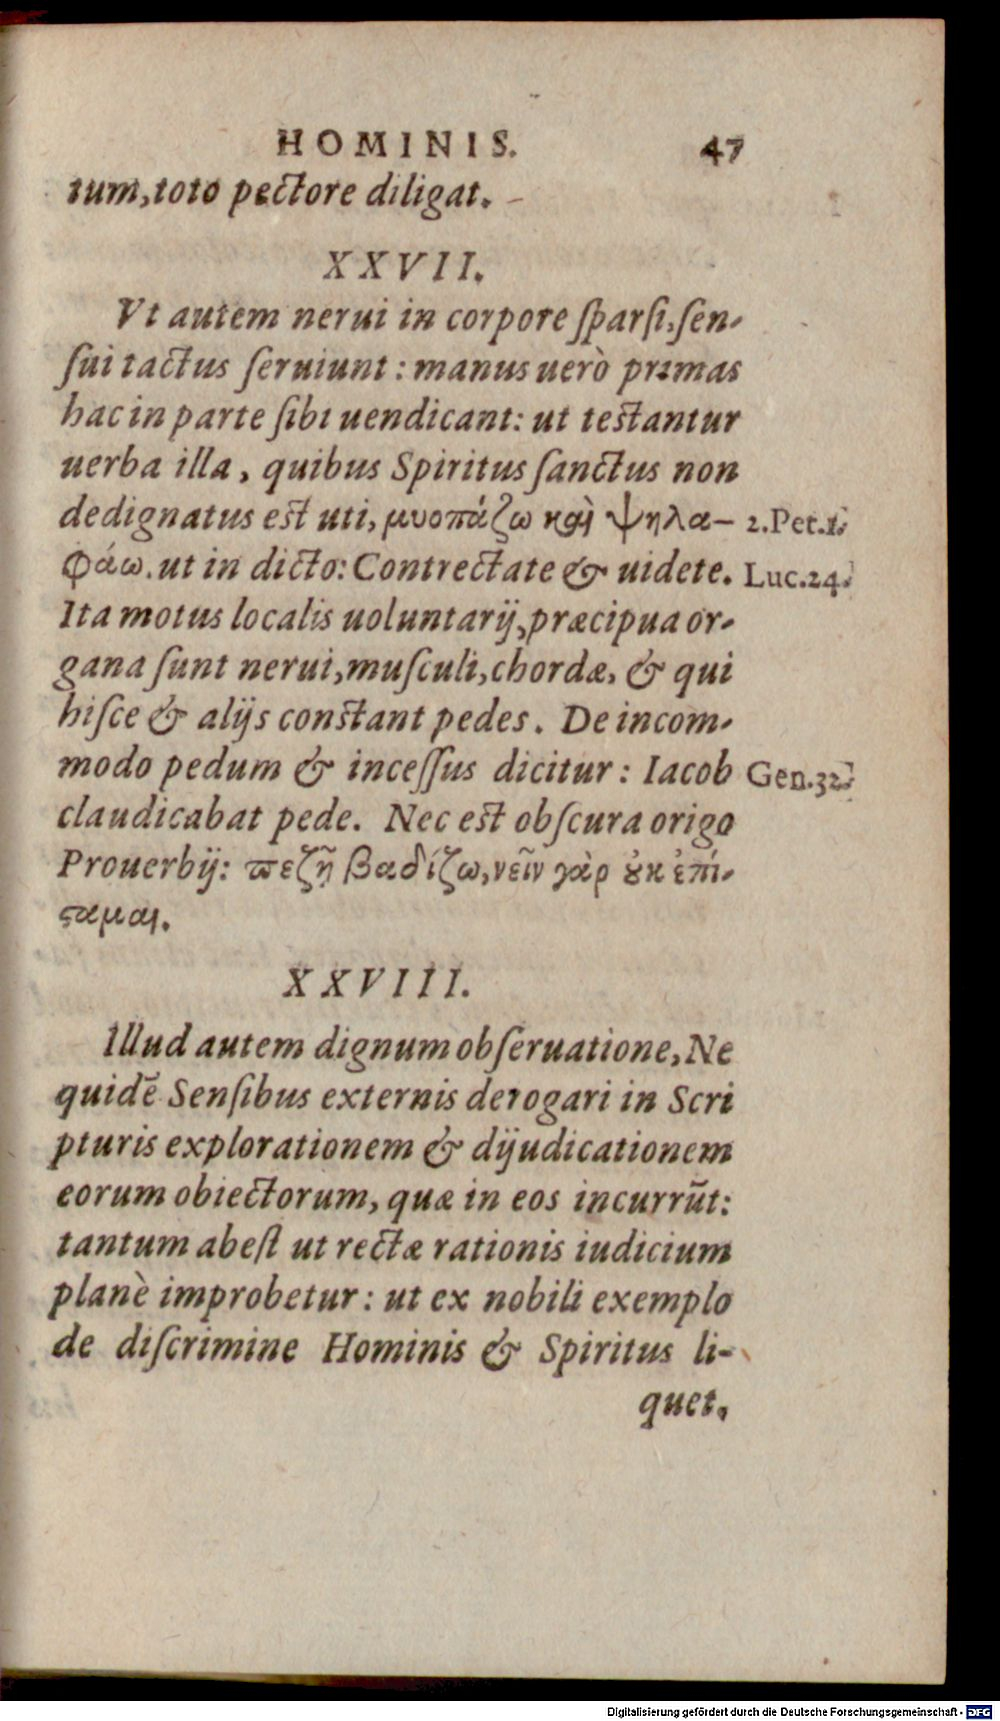 HOMINIS. 47
tum, toto pectore diligat.
XXVII.
Vt autem nerui in corpore ſparſi, ſen-
ſui tactus ſeruiunt: manus uerò primas
hac in parte ſibi uendicant: ut testantur
uerba illa, quibus Spiritus ſanctus non
dedignatus est uti, μυοπάζω καὶ ψηλα- 2. Pet. 1.
φάω. ut in dicto: Contrectate & uidete. Luc. 24.
Ita motus localis uoluntarij, præcipua or-
gana ſunt nerui, muſculi, chordæ, & qui
hiſce & alijs constant pedes. De incom-
modo pedum & inceſſus dicitur: Iacob Gen. 32.
claudicabat pede. Nec est obſcura origo
Prouerbij: πεζῇ βαδίζω, νεῖν γὰρ ȣ̓κ ἐπί-
ϛαμαι.
XXVIII.
Illud autem dignum obſeruatione, Ne
quidẽ Senſibus externis derogari in Scri
pturis explorationem & dijudicationem
eorum obiectorum, quæ in eos incurrũt:
tantum abeſt ut rectæ rationis iudicium
planè improbetur: ut ex nobili exemplo
de diſcrimine Hominis & Spiritus li-
quet,
Digitalisierung gefördert durch die Deutsche Forschungsgemeinschaft - DFG